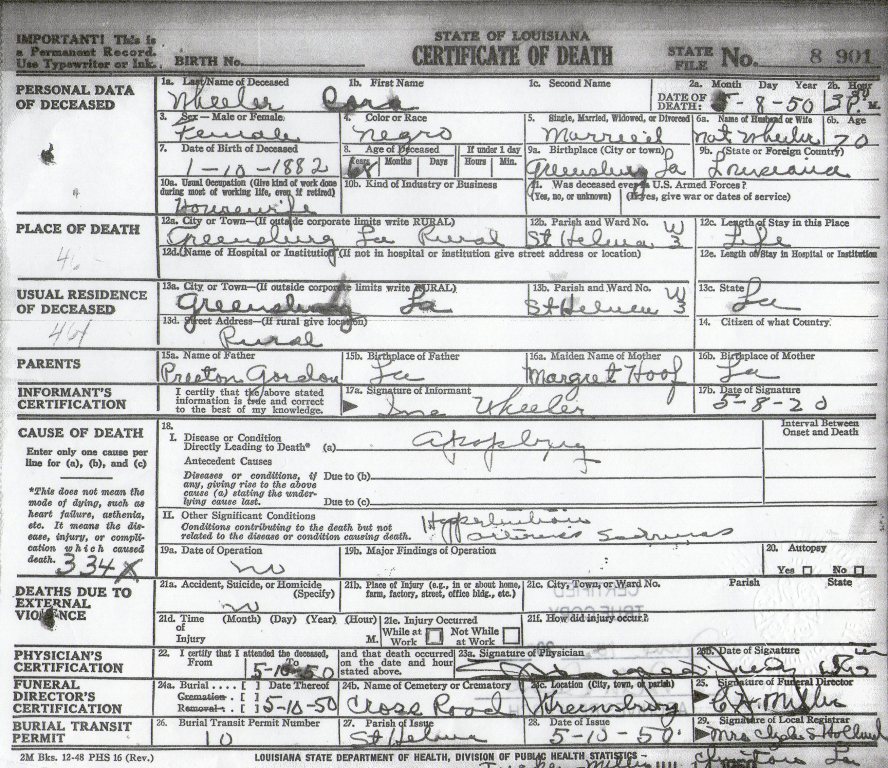 IMPORTANT! This is
a Permanent Record.
Use Typewriter or Ink.
BIRTH No.
STATE OF LOUISIANA
CERTIFICATE OF DEATH
STATE
FILE No. 8 901
PERSONAL DATA
OF DECEASED
1a. Last Name of Deceased 1b. First Name 1c. Second Name 2a. Month Day Year 2b. Hour
Wheeler Cora DATE OF DEATH: 5-8-50 3 P. M.
3. Sex—Male or Female 4. Color or Race 5. Single, Married, Widowed, or Divorced 6a. Name of Husband or Wife 6b. Age
Female Negro Married Nat Wheeler 70
7. Date of Birth of Deceased 8. Age of Deceased If under 1 day 9a. Birthplace (City or town) 9b. (State or Foreign Country)
1-10-1882 Years 68 Months Days Hours Min. Greensburg La Louisiana
10a. Usual Occupation (Give kind of work done during most of working life, even if retired) 10b. Kind of Industry or Business 11. Was deceased ever in U.S. Armed Forces?
(Yes, no, or unknown) (If yes, give war or dates of service)
Housewife
PLACE OF DEATH
12a. City or Town—(If outside corporate limits write RURAL) 12b. Parish and Ward No. 12c. Length of Stay in this Place
Greensburg La Rural St Helena W 3 Life
12d. (Name of Hospital or Institution) (If not in hospital or institution give street address or location) 12e. Length of Stay in Hospital or Institution
USUAL RESIDENCE
OF DECEASED
13a. City or Town—(If outside corporate limits write RURAL) 13b. Parish and Ward No. 13c. State
Greensburg La St Helena W 3 La
13d. Street Address—(If rural give location) 14. Citizen of what Country
Rural
PARENTS
15a. Name of Father 15b. Birthplace of Father 16a. Maiden Name of Mother 16b. Birthplace of Mother
Preston Gordon La Margret Hoof La
INFORMANT'S
CERTIFICATION
I certify that the above stated
information is true and correct
to the best of my knowledge.
17a. Signature of Informant 17b. Date of Signature
Wheeler 5-8-20
CAUSE OF DEATH
Enter only one cause per
line for (a), (b), and (c)
*This does not mean the
mode of dying, such as
heart failure, asthenia,
etc. It means the dis-
ease, injury, or compli-
cation which caused
death. 334X
18. Interval Between
Onset and Death
I. Disease or Condition
Directly Leading to Death* (a)
Antecedent Causes
Diseases or conditions, if Due to (b)
any, giving rise to the above
cause (a) stating the under-
lying cause last. Due to (c)
II. Other Significant Conditions
Conditions contributing to the death but not
related to the disease or condition causing death.
19a. Date of Operation 19b. Major Findings of Operation 20. Autopsy
no Yes No
DEATHS DUE TO
EXTERNAL
VIOLENCE
21a. Accident, Suicide, or Homicide
(Specify)
21b. Place of Injury (e.g., in or about home,
farm, factory, street, office bldg., etc.)
21c. City, Town, or Ward No. Parish State
no
21d. Time of Injury (Month) (Day) (Year) (Hour) M.
21e. Injury Occurred
While at Work Not While at Work
21f. How did injury occur?
PHYSICIAN'S
CERTIFICATION
22. I certify that I attended the deceased,
From To
5-10-50
and that death occurred
on the date and hour
stated above.
23a. Signature of Physician 23b. Date of Signature
FUNERAL
DIRECTOR'S
CERTIFICATION
24a. Burial.... [ ] Date Thereof 24b. Name of Cemetery or Crematory 24c. Location (City, town, or parish) 25. Signature of Funeral Director
Cremation. [ ]
Removal.. [ ] 5-10-50 Cross Road Greensburg
BURIAL TRANSIT
PERMIT
26. Burial Transit Permit Number 27. Parish of Issue 28. Date of Issue 29. Signature of Local Registrar
10 St Helena 5-10-50
2M Bks. 12-48 PHS 16 (Rev.)
LOUISIANA STATE DEPARTMENT OF HEALTH, DIVISION OF PUBLIC HEALTH STATISTICS